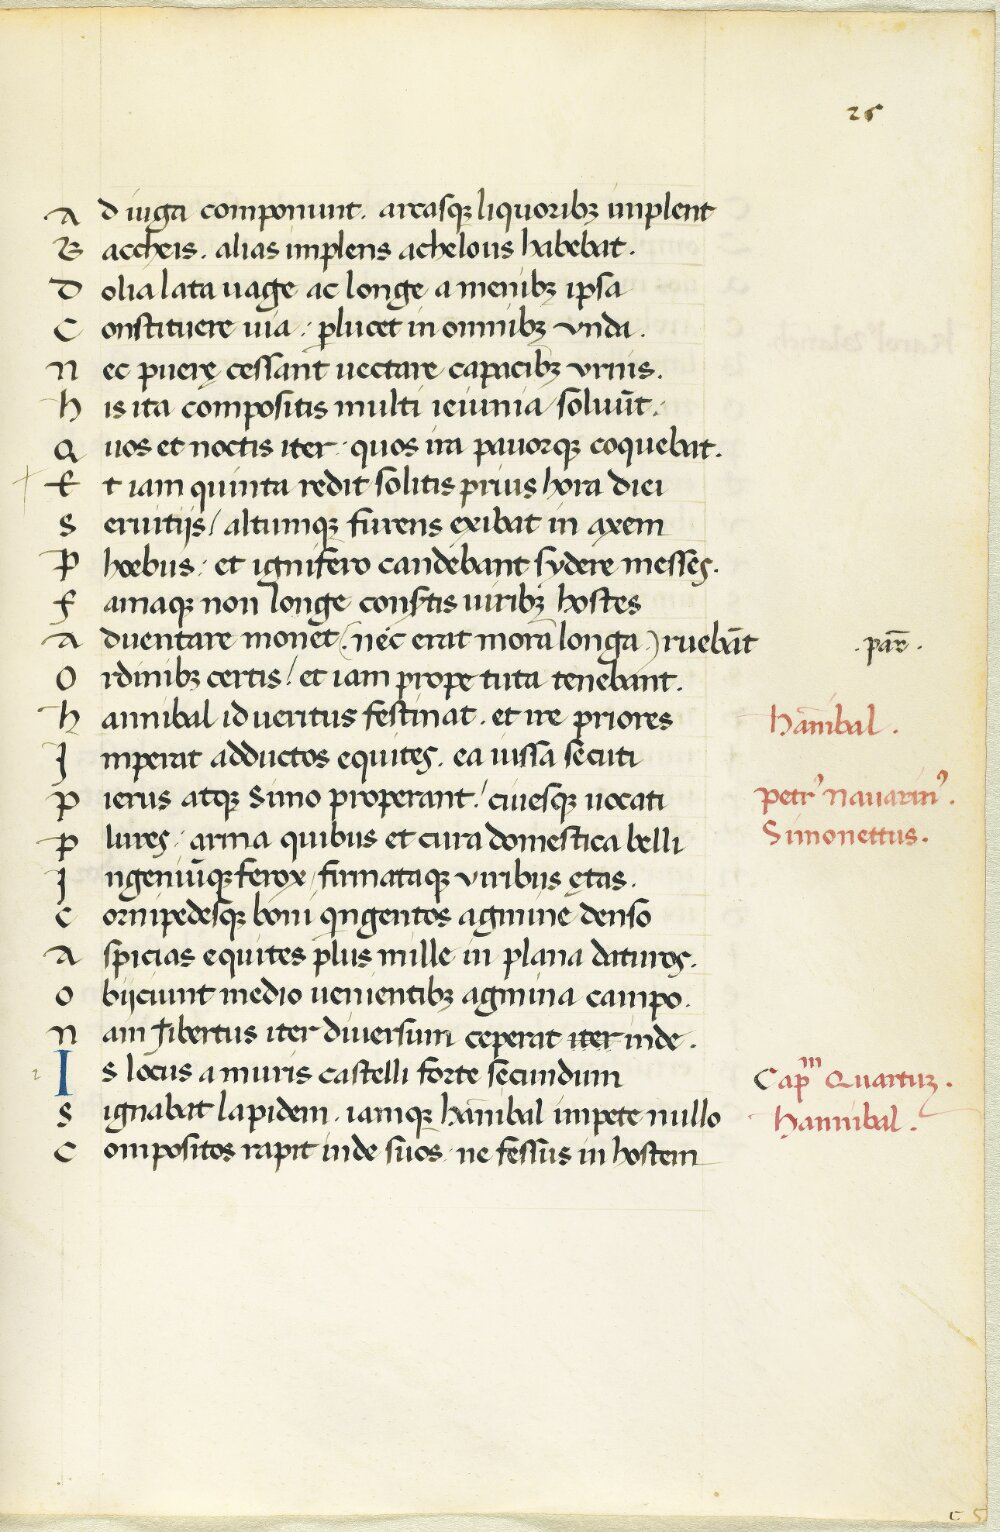 25
A d iuga componunt. arcasq; liquorib; implent
B accheis. alias implens achelous habebat.
D olia lata uage ac longe a menib; ipsa
C onstituere uia: plucet in omnib; vnda.
N ec puerę cessant uectare capacib; vrnis.
H is ita compositis multi ieiunia soluūt.
Q uos et noctis iter: quos ira pauorq; coquebat.
E t iam quinta redit solitis prius hora diei
S eruitijs/ altumq; furens exibat in axem
P hœbus: et ignifero candebant sydere messes.
F amaq; non longe consťtis uirib; hostes
A duentare monet (nec erat mora longa) ruebāt .par̄.
O rdinib; certis/ et iam prope tuta tenebant.
H annibal id ueritus festinat. et ire priores Hānibal.
I mperat adductos equites. ea iussa secuti
P ierus atq; Simo properant/ ciuesq; uocati Petr9 Nauarin9.
P lures: arma quibus et cura domestica belli Simonettus.
I ngeniūq; ferox/ firmataq; viribus ętas.
C ornipedesq; boni qngentos agmine denso
A spicias equites plus mille in plana daturos.
O bijciunt medio uenientib; agmina campo.
N am fibertus iter diuersum ceperat iter inde.
I s locus a muris castelli forte secundum Capᵐ Quartuz.
S ignabat lapidem. iamq; hānibal impete nullo Hannibal.
C ompositos rapit inde suos. ne fessus in hostem
c 5